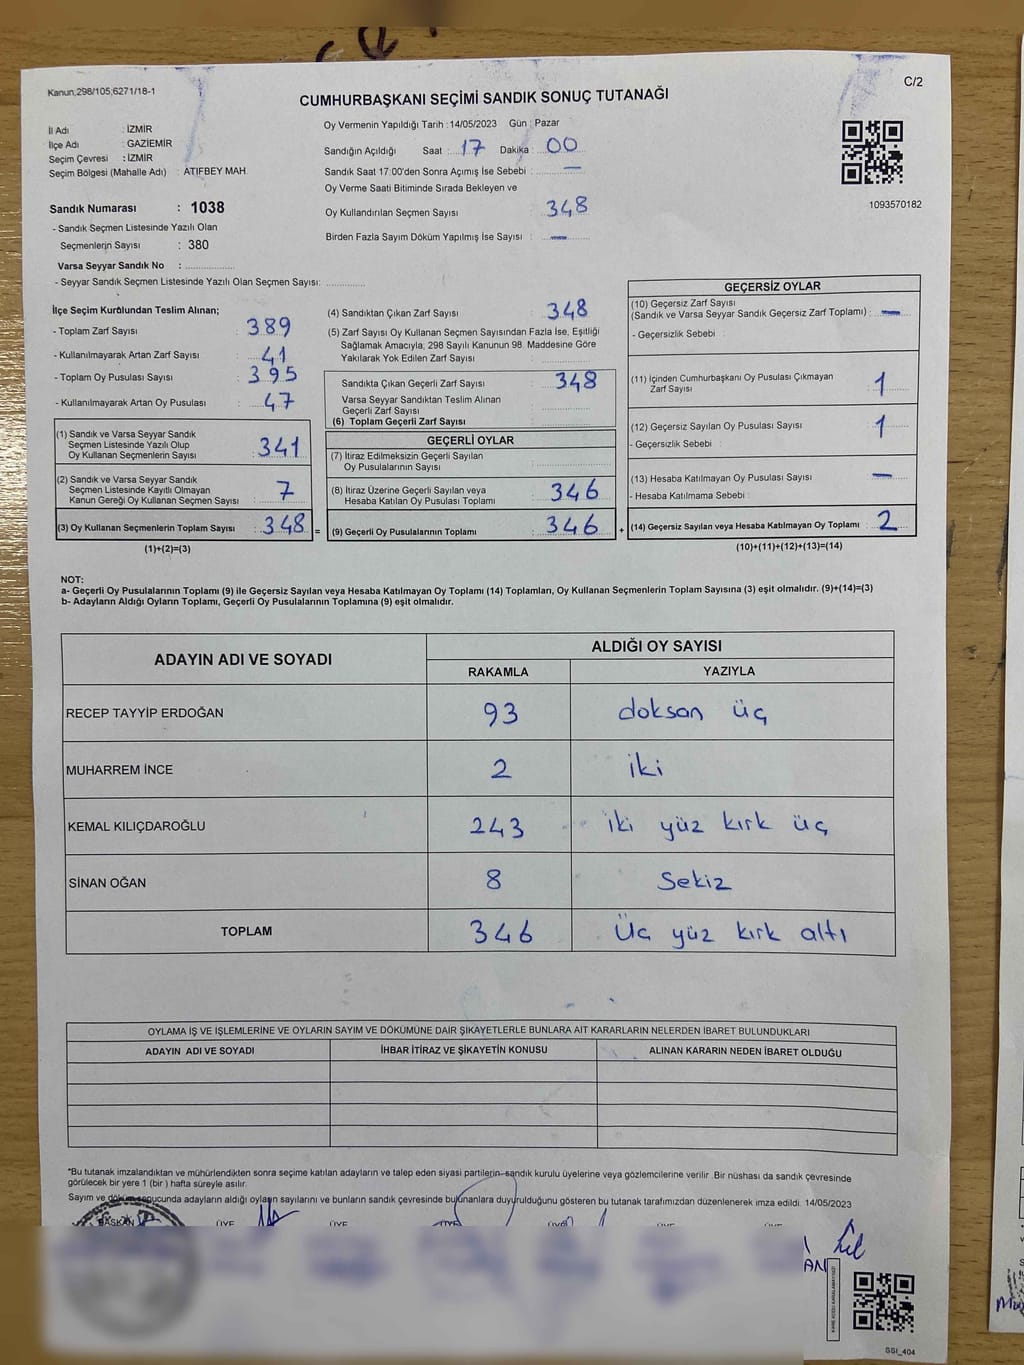 Kanun,298/105,6271/18-1
C/2
CUMHURBAŞKANI SEÇİMİ SANDIK SONUÇ TUTANAĞI
İl Adı : İZMİR
İlçe Adı : GAZİEMİR
Seçim Çevresi : İZMİR
Seçim Bölgesi (Mahalle Adı) : ATIFBEY MAH.
Sandık Numarası : 1038
- Sandık Seçmen Listesinde Yazılı Olan
Seçmenlerin Sayısı : 380
Varsa Seyyar Sandık No :
- Seyyar Sandık Seçmen Listesinde Yazılı Olan Seçmen Sayısı:
Oy Vermenin Yapıldığı Tarih : 14/05/2023 Gün : Pazar
Sandığın Açıldığı Saat : 17 Dakika : 00
Sandık Saat 17:00'den Sonra Açımış İse Sebebi : —
Oy Verme Saati Bitiminde Sırada Bekleyen ve
Oy Kullandırılan Seçmen Sayısı 348
Birden Fazla Sayım Döküm Yapılmış İse Sayısı : —
1093570182
İlçe Seçim Kurulundan Teslim Alınan;
- Toplam Zarf Sayısı : 389
- Kullanılmayarak Artan Zarf Sayısı : 41
- Toplam Oy Pusulası Sayısı : 395
- Kullanılmayarak Artan Oy Pusulası : 47
(1) Sandık ve Varsa Seyyar Sandık
Seçmen Listesinde Yazılı Olup
Oy Kullanan Seçmenlerin Sayısı : 341
(2) Sandık ve Varsa Seyyar Sandık
Seçmen Listesinde Kayıtlı Olmayan
Kanun Gereği Oy Kullanan Seçmen Sayısı : 7
(3) Oy Kullanan Seçmenlerin Toplam Sayısı : 348 =
(1)+(2)=(3)
(4) Sandıktan Çıkan Zarf Sayısı : 348
(5) Zarf Sayısı Oy Kullanan Seçmen Sayısından Fazla İse, Eşitliği
Sağlamak Amacıyla, 298 Sayılı Kanunun 98. Maddesine Göre
Yakılarak Yok Edilen Zarf Sayısı :
Sandıkta Çıkan Geçerli Zarf Sayısı : 348
Varsa Seyyar Sandıktan Teslim Alınan
Geçerli Zarf Sayısı :
(6) Toplam Geçerli Zarf Sayısı :
GEÇERLİ OYLAR
(7) İtiraz Edilmeksizin Geçerli Sayılan
Oy Pusulalarının Sayısı :
(8) İtiraz Üzerine Geçerli Sayılan veya
Hesaba Katılan Oy Pusulası Toplamı : 346
(9) Geçerli Oy Pusulalarının Toplamı : 346 +
GEÇERSİZ OYLAR
(10) Geçersiz Zarf Sayısı
(Sandık ve Varsa Seyyar Sandık Geçersiz Zarf Toplamı) : —
- Geçersizlik Sebebi :
(11) İçinden Cumhurbaşkanı Oy Pusulası Çıkmayan
Zarf Sayısı : 1
(12) Geçersiz Sayılan Oy Pusulası Sayısı : 1
- Geçersizlik Sebebi :
(13) Hesaba Katılmayan Oy Pusulası Sayısı : —
- Hesaba Katılmama Sebebi :
(14) Geçersiz Sayılan veya Hesaba Katılmayan Oy Toplamı : 2
(10)+(11)+(12)+(13)=(14)
NOT:
a- Geçerli Oy Pusulalarının Toplamı (9) ile Geçersiz Sayılan veya Hesaba Katılmayan Oy Toplamı (14) Toplamları, Oy Kullanan Seçmenlerin Toplam Sayısına (3) eşit olmalıdır. (9)+(14)=(3)
b- Adayların Aldığı Oyların Toplamı, Geçerli Oy Pusulalarının Toplamına (9) eşit olmalıdır.
ADAYIN ADI VE SOYADI
ALDIĞI OY SAYISI
RAKAMLA YAZIYLA
RECEP TAYYİP ERDOĞAN 93 doksan üç
MUHARREM İNCE 2 iki
KEMAL KILIÇDAROĞLU 243 iki yüz kırk üç
SİNAN OĞAN 8 Sekiz
TOPLAM 346 Üç yüz kırk altı
OYLAMA İŞ VE İŞLEMLERİNE VE OYLARIN SAYIM VE DÖKÜMÜNE DAİR ŞİKAYETLERLE BUNLARA AİT KARARLARIN NELERDEN İBARET BULUNDUKLARI
ADAYIN ADI VE SOYADI İHBAR İTİRAZ VE ŞİKAYETİN KONUSU ALINAN KARARIN NEDEN İBARET OLDUĞU
*Bu tutanak imzalandıktan ve mühürlendikten sonra seçime katılan adayların ve talep eden siyasi partilerin sandık kurulu üyelerine veya gözlemcilerine verilir. Bir nüshası da sandık çevresinde
görülecek bir yere 1 (bir) hafta süreyle asılır.
Sayım ve döküm sonucunda adayların aldığı oyların sayılarını ve bunların sandık çevresinde bulunanlara duyurulduğunu gösteren bu tutanak tarafımızdan düzenlenerek imza edildi. 14/05/2023
BAŞKAN ÜYE ÜYE ÜYE ÜYE ÜYE ÜYE
SSI_404